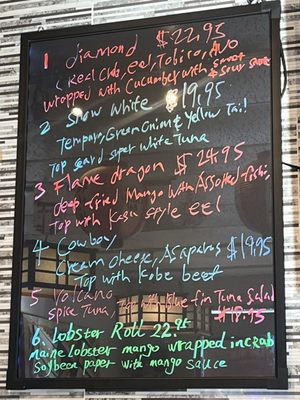 1 diamond $22.95
( Real Club, eel, Tobiro, Avo
wrapped with Cucumber with sweet & sour sauce
2 Snow White $19.95
Tempura, Green Onion & Yellow Tail
Top seard super white Tuna
3 Flame dragon $24.95
deep fried Mango with Assorted fish,
Top with Kasu style eel
4 Cowboy
Cream Cheese, Asaparas $19.95
Top with Kobe beef
5 Volcano
spice Tuna, blue fin Tuna Salad
$18.95
6. Lobster Roll 22.95
maine Lobster mango wrapped in crab
Soybean paper with mango sauce